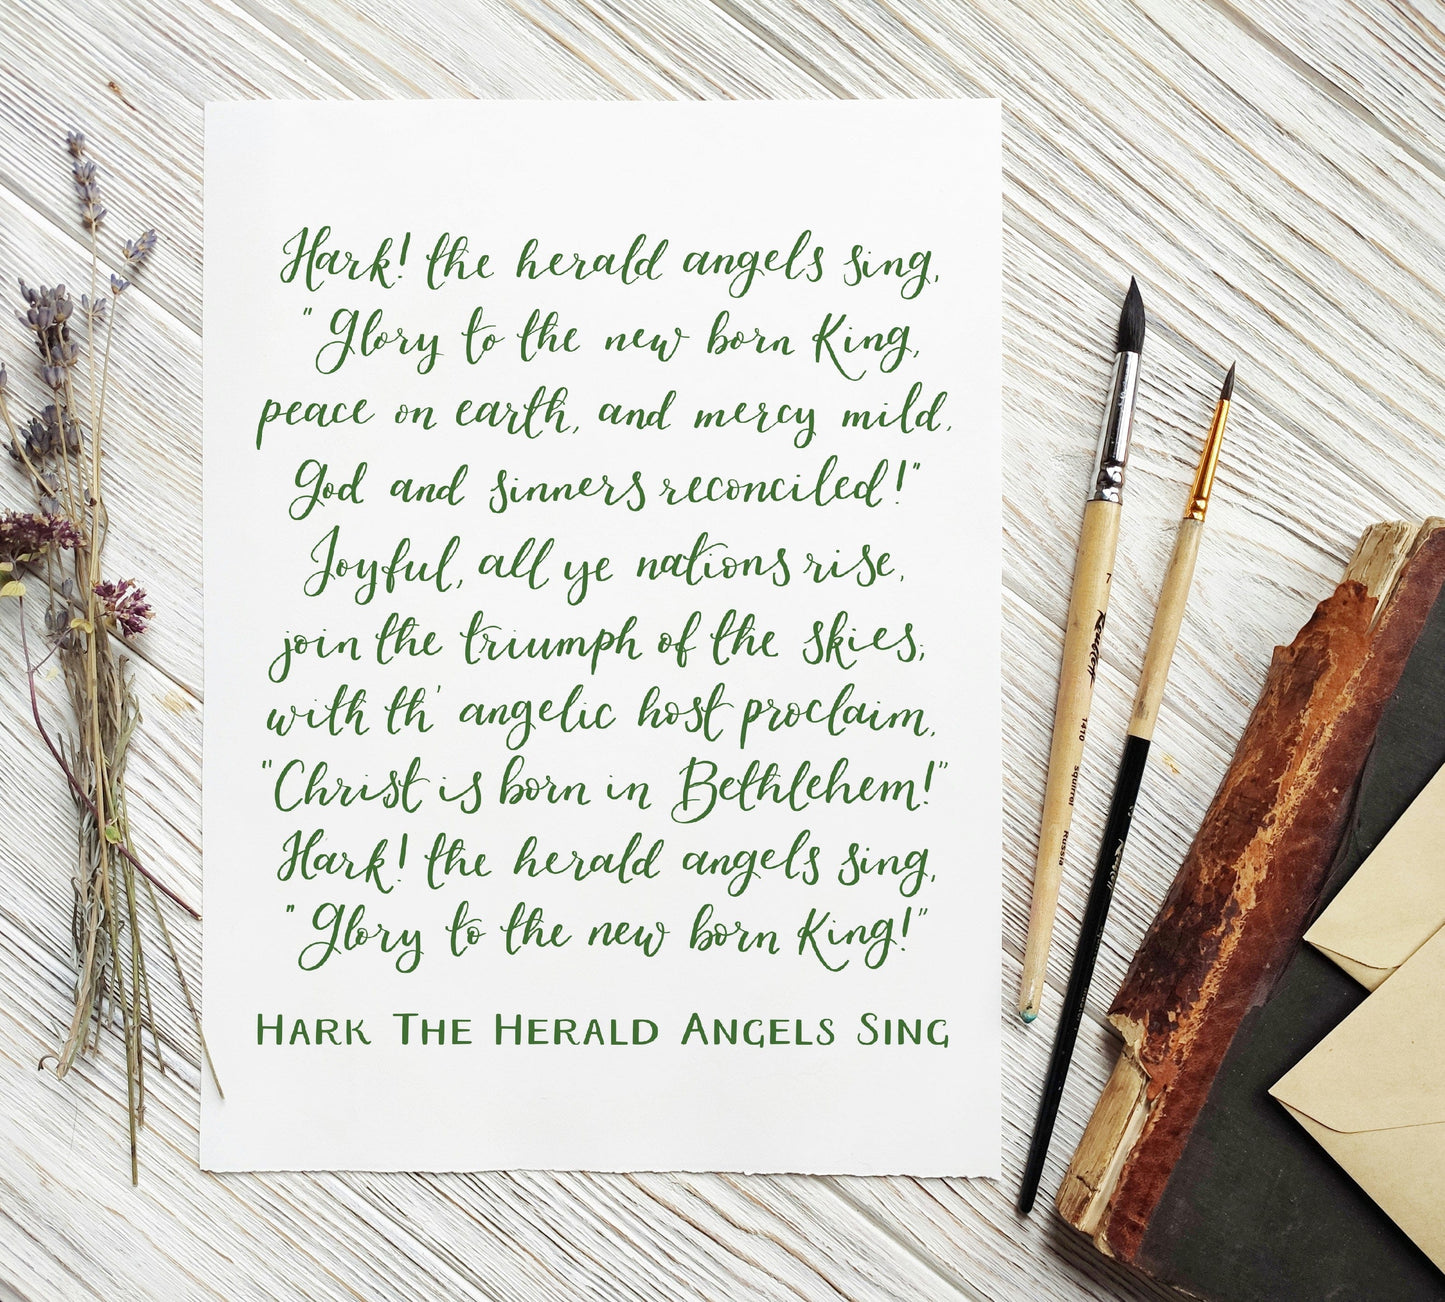 Hark! the herald angels sing,
"Glory to the new born King,
peace on earth, and mercy mild,
God and sinners reconciled!"
Joyful, all ye nations rise,
join the triumph of the skies;
with th' angelic host proclaim,
"Christ is born in Bethlehem!"
Hark! the herald angels sing,
"Glory to the new born King!"
HARK THE HERALD ANGELS SING
7
1410
squirrel
Russia